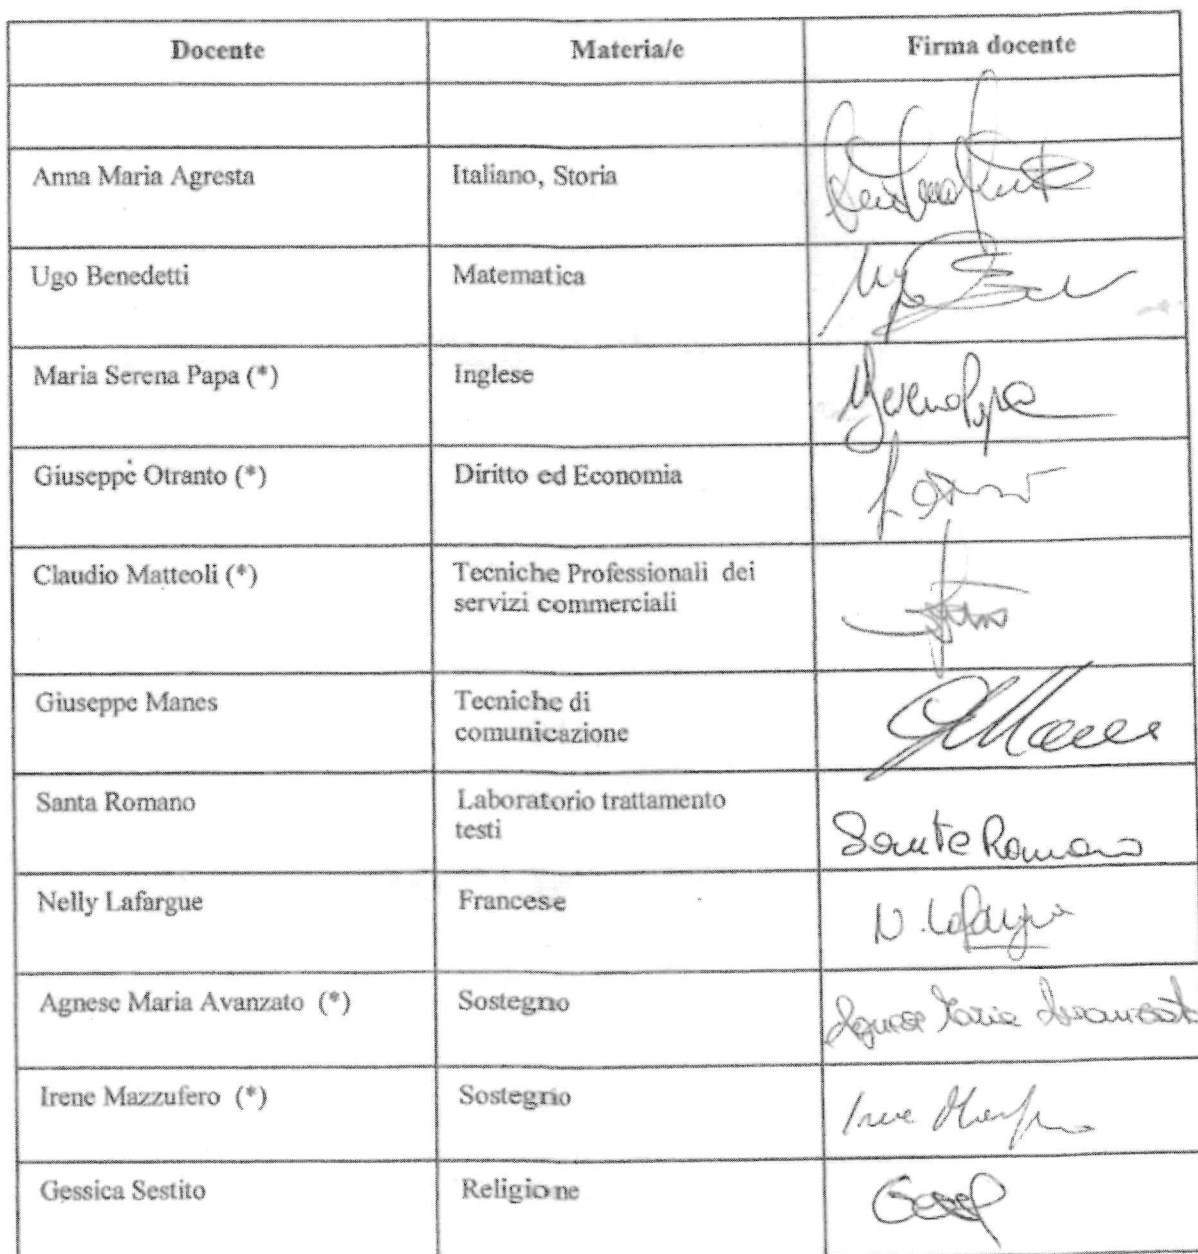 Docente Materia/e Firma docente
Anna Maria Agresta Italiano, Storia
Ugo Benedetti Matematica
Maria Serena Papa (*) Inglese
Giuseppe Otranto (*) Diritto ed Economia
Claudio Matteoli (*) Tecniche Professionali dei
servizi commerciali
Giuseppe Manes Tecniche di
comunicazione
Santa Romano Laboratorio trattamento
testi
Santa Romano
Nelly Lafargue Francese N. Lafargue
Agnese Maria Avanzato (*) Sostegno Agnese Maria Avanzato
Irene Mazzufero (*) Sostegno
Gessica Sestito Religione